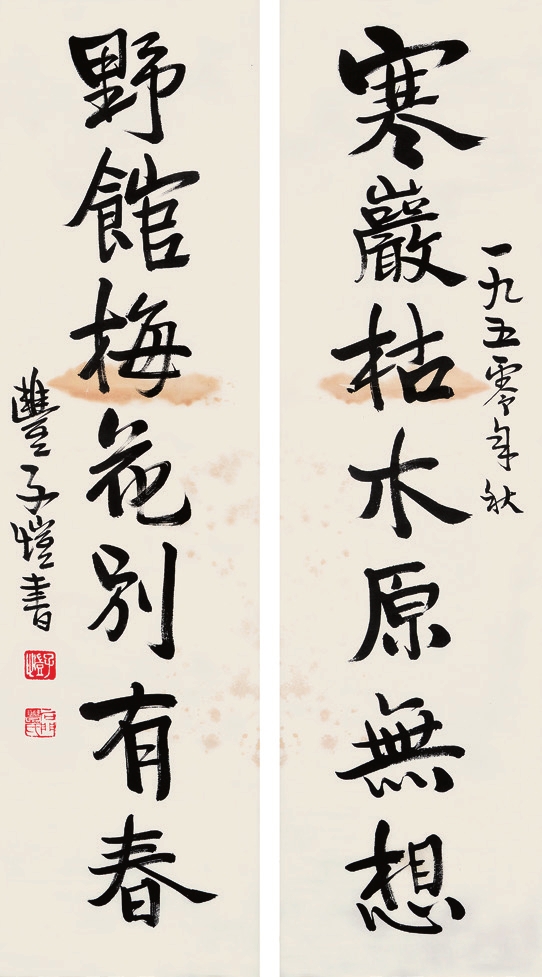 一九五零年秋
寒巖枯木原無想
野館梅花別有春
豐子愷書
子愷
石門豐氏